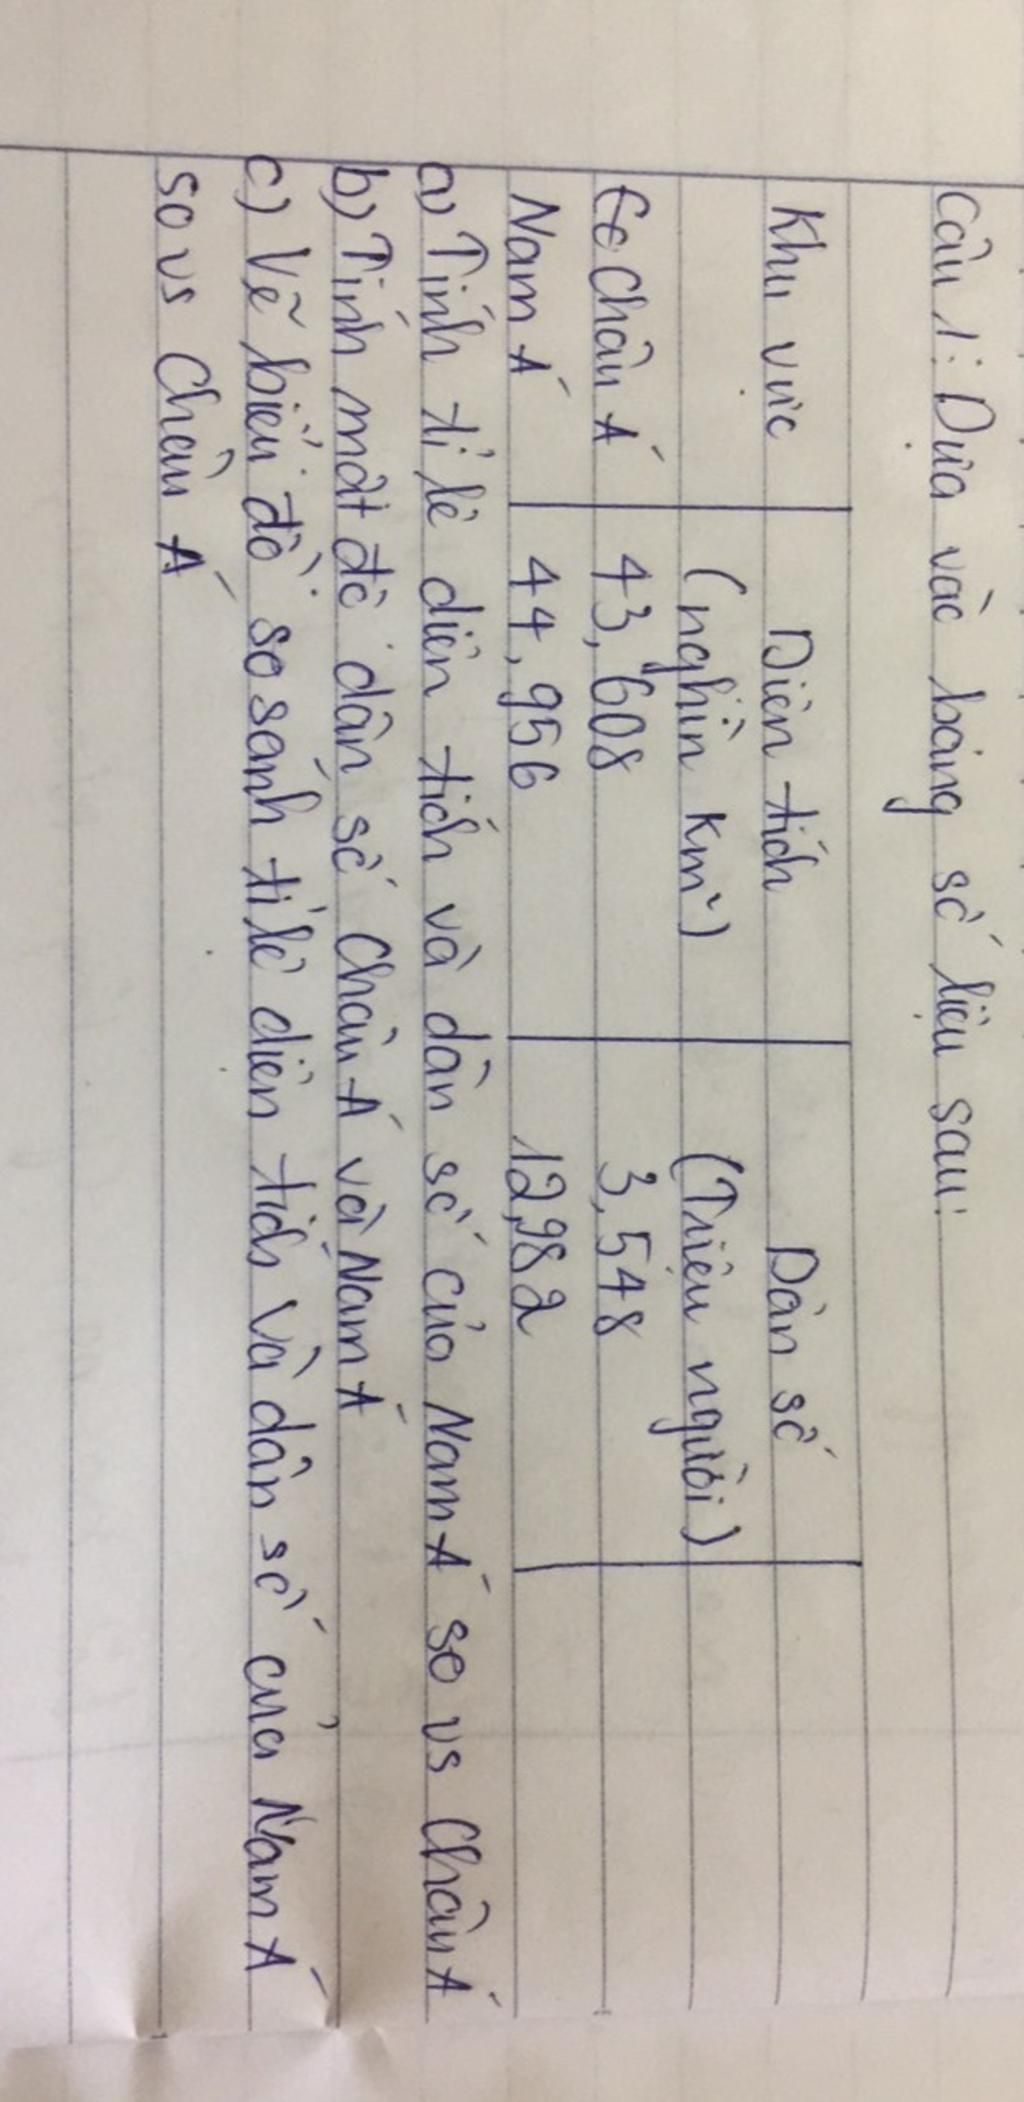 Câu 1: Dựa vào bảng số liệu sau:
Khu vực Diện tích Dân số
(nghìn km²) (Triệu người)
Châu Á 43,608 3,548
Nam Á 44,956 12,982
a) Tính tỉ lệ diện tích và dân số của Nam Á so vs Châu Á
b) Tính mật độ dân số Châu Á và Nam Á
c) Vẽ biểu đồ so sánh tỉ lệ diện tích và dân số của Nam Á
so vs Châu Á